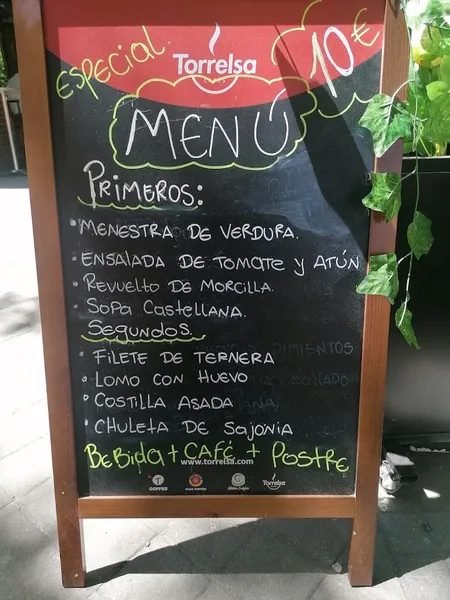 Especial
Torrelsa
10€
MENÚ
PRIMEROS:
• MENESTRA DE VERDURA.
• ENSALADA DE TOMATE Y ATÚN
• REVUELTO DE MORCILLA.
• SOPA CASTELLANA.
SEGUNDOS.
• FILETE DE TERNERA
• LOMO CON HUEVO
• COSTILLA ASADA
• CHULETA DE SAJONIA
BEBIDA + CAFÉ + POSTRE
www.torrelsa.com
Torrelsa